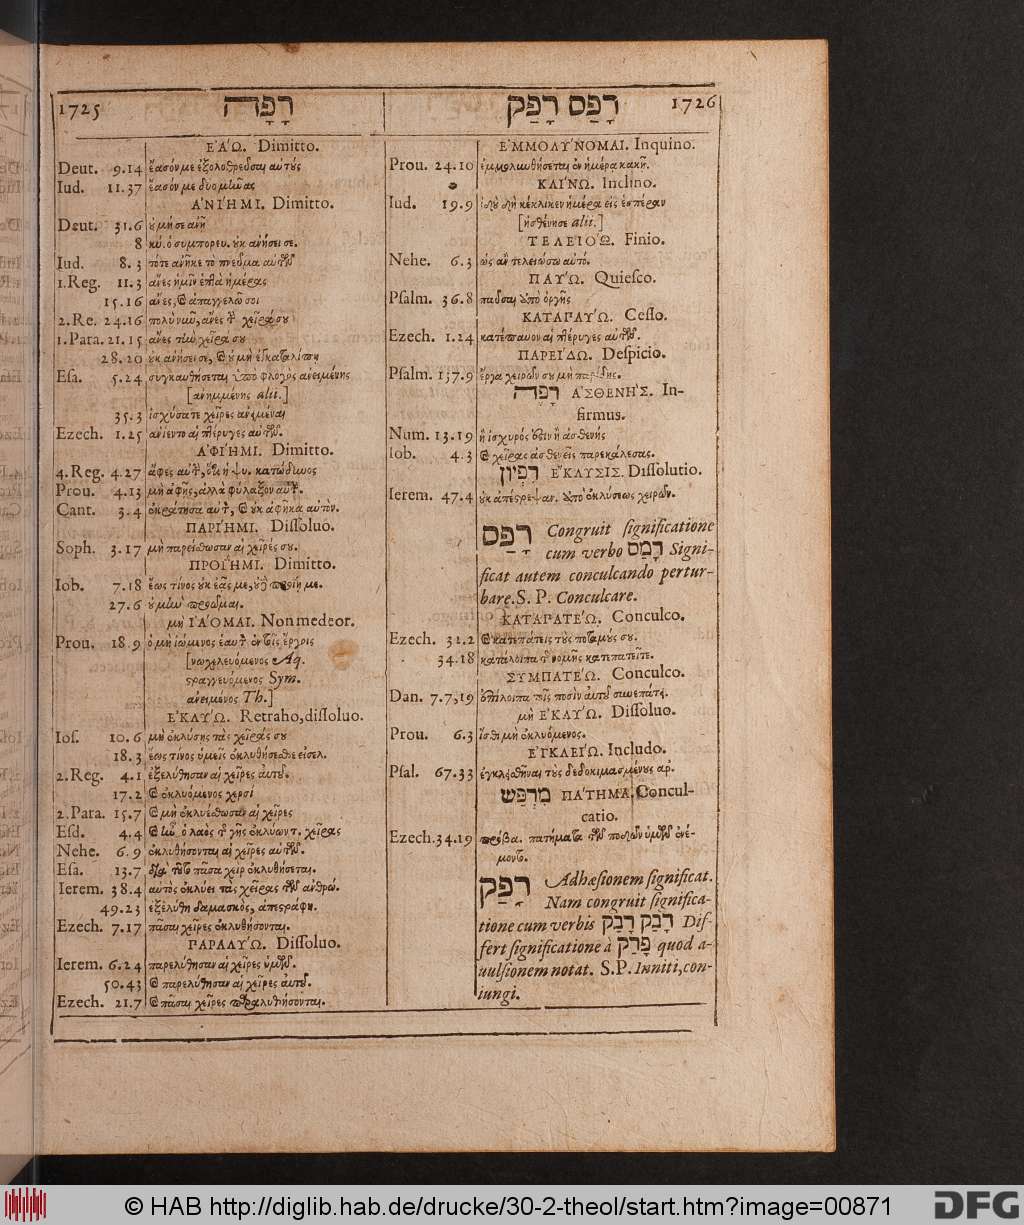 1725 רָפָה
ΕΑ΄Ω. Dimitto.
Deut. 9.14 ἔασόν με ἐξολοθρεῦσαι αὐτούς
Iud. 11.37 ἔασόν με δύο μῆνας
ΑΝΙΉΜΙ. Dimitto.
Deut. 31.6 οὐ μή σε ἀνῇ
8 κύ. ὁ συμπορευ. οὐκ ἀνήσει σε.
Iud. 8.3 τότε ἀνῆκε τὸ πνεῦμα αὐτῶν
1.Reg. 11.3 ἄνες ἡμῖν ἑπτὰ ἡμέρας
15.16 ἄνες, καὶ ἀπαγγελῶ σοι
2.Re. 24.16 πολὺ νῦν, ἄνες τ χεῖρά σου
1.Para. 21.15 ἄνες τὴν χεῖρα σου
28.20 οὐκ ἀνήσει σε, καὶ οὐ μὴ ἐγκαταλίπῃ
Esa. 5.24 συγκαυθήσεται ὑπὸ φλογὸς ἀνειμένης
[ἀνημμένης alit.]
35.3 ἰσχύσατε χεῖρες ἀνειμέναι
Ezech. 1.25 ἀνίεντο αἱ πτέρυγες αὐτῶν.
ΑΦΙΉΜΙ. Dimitto.
4.Reg. 4.27 ἄφες αὐτ, ὅτι ἡ ψυ. κατώδυνος
Prou. 4.13 μὴ ἀφῇς, ἀλλὰ φύλαξον αὐτ.
Cant. 3.4 ἐκράτησα αὐτ, καὶ οὐκ ἀφῆκα αὐτόν.
ΠΑΡΙΉΜΙ. Dissoluo.
Soph. 3.17 μὴ παρείσθωσαν αἱ χεῖρές σου.
ΠΡΟΙΉΜΙ. Dimitto.
Iob. 7.18 ἕως τίνος οὐκ ἐᾷς με, οὐδὲ προΐῃ με.
27.6 οὐ μὴν πρόωμαι.
μὴ ΙΆΟΜΑΙ. Non medeor.
Prou. 18.9 ὁ μὴ ἰώμενος ἑαυτ ἐν τοῖς ἔργοις
[νωχελευόμενος Aq.
στραγγευόμενος Sym.
ἀνειμένος Th.]
ΕΚΛΎΩ. Retraho, dissoluo.
Ios. 10.6 μὴ ἐκλύσῃς τὰς χεῖράς σου
18.3 ἕως τίνος ὑμεῖς ἐκλυθήσεσθε εἰσελ.
2.Reg. 4.1 ἐξελύθησαν αἱ χεῖρες αὐτοῦ.
17.2 καὶ ἐκλυόμενος χερσί
2.Para. 15.7 καὶ μὴ ἐκλυέσθωσαν αἱ χεῖρες
Esd. 4.4 καὶ ἦν ὁ λαὸς τ γῆς ἐκλύων τ. χεῖρας
Nehe. 6.9 ἐκλυθήσονται αἱ χεῖρες αὐτῶν.
Esa. 13.7 διὰ τοῦτο πᾶσα χεὶρ ἐκλυθήσεται.
Ierem. 38.4 αὐτὸς ἐκλύει τὰς χεῖρας τῶν ἀνθρώ.
49.23 ἐξελύθη δαμασκός, ἀπεστράφη.
Ezech. 7.17 πᾶσαι χεῖρες ἐκλυθήσονται.
ΠΑΡΑΛΎΩ. Dissoluo.
Ierem. 6.24 παρελύθησαν αἱ χεῖρες ἡμῶν.
50.43 καὶ παρελύθησαν αἱ χεῖρες αὐτοῦ.
Ezech. 21.7 καὶ πᾶσαι χεῖρες παραλυθήσονται.
רָפַס רָפַק 1726
ΕΜΜΟΛΎΝΟΜΑΙ. Inquino.
Prou. 24.10 ἐμμολυνθήσεται ἐν ἡμέρᾳ κακῇ.
ΚΛΊΝΩ. Inclino.
Iud. 19.9 ἰδοὺ δὴ κέκλικεν ἡμέρα εἰς ἑσπέραν
[ἠσθένησε alit.]
ΤΕΛΕΙΌΩ. Finio.
Nehe. 6.3 ὡς ἂν τελειώσω αὐτό.
ΠΑΎΩ. Quiesco.
Psalm. 36.8 παῦσαι ἀπὸ ὀργῆς
ΚΑΤΑΠΑΎΩ. Cesso.
Ezech. 1.24 κατέπαυον αἱ πτέρυγες αὐτῶν.
ΠΑΡΕΊΔΩ. Despicio.
Psalm. 137.9 ἔργα χειρῶν σου μὴ παρίδῃς.
רָפֶה ΑΣΘΕΝΉΣ. In-
firmus.
Num. 13.19 ἢ ἰσχυρός ἐστιν ἢ ἀσθενής
Iob. 4.3 καὶ χεῖρας ἀσθενεῖς παρεκάλεσας.
רִפְיוֹן ΕΚΛΥΣΙΣ. Dissolutio.
Ierem. 47.4 οὐκ ἀπέστρεψαν. ἀπὸ ἐκλύσεως χειρῶν.
רָפַס Congruit significatione
cum verbo רָמַס Signi-
ficat autem conculcando pertur-
bare. S. P. Conculcare.
ΚΑΤΑΠΑΤΈΩ. Conculco.
Ezech. 32.2 καὶ κατεπάτεις τοὺς ποταμούς σου.
34.18 κατάλοιπα τ νομῆς κατεπατεῖτε.
ΣΥΜΠΑΤΈΩ. Conculco.
Dan. 7.7,19 ἐπίλοιπα τοῖς ποσὶν αὐτοῦ συνεπάτει.
μὴ ΕΚΛΎΩ. Dissoluo.
Prou. 6.3 ἴσθι μὴ ἐκλυόμενος.
ΕΓΚΛΕΊΩ. Includo.
Psal. 67.33 ἐγκλεισθῆναι τοὺς δεδοκιμασμένους ἀρ.
מִרְפַּשׂ ΠΆΤΗΜΑ. Concul-
catio.
Ezech. 34.19 πρόβα. πατήματα τῶν ποδῶν ὑμῶν ἐνέ-
μοντο.
רָפַק Adhæsionem significat.
Nam congruit significa-
tione cum verbis רָבַק דָבַק Dif-
fert significatione à פָּרַק quod a-
uulsionem notat. S.P. Inniti, con-
iungi.
© HAB http://diglib.hab.de/drucke/30-2-theol/start.htm?image=00871
DFG